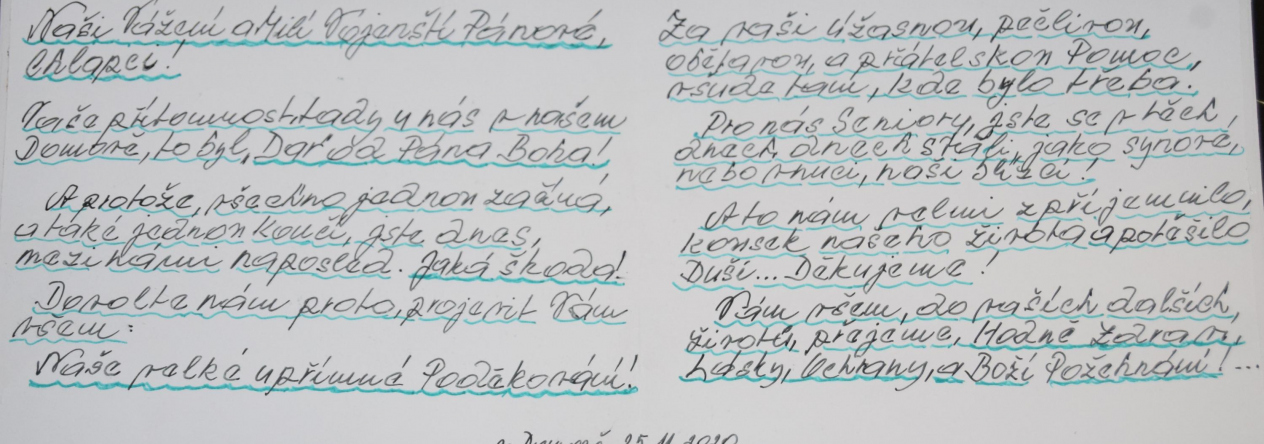 Naši Vážení a Milí Vojenští Pánové,
Chlapci!
Vaše přítomnost, tady u nás v našem
Domově, to byl, Dar od Pána Boha!
A protože, všechno jednou začíná,
a také jednou končí, jste dnes,
mezi námi naposled. Jaká škoda!
Dovolte nám proto, projevit Vám
všem:
Naše velké upřímné Poděkování!
Za vaši úžasnou, pečlivou,
obětavou, a přátelskou Pomoc,
všude tam, kde bylo třeba.
Pro nás Seniory, jste se v těch,
dnech, dnech stali, jako synové,
nebo vnuci, naši blízcí!
A to nám velmi zpříjemnilo,
kousek našeho života a potěšilo
Duši... Děkujeme!
Vám všem, do vašich dalších,
životů, přejeme, Hodně Zdraví,
Lásky, Ochrany, a Boží Požehnání!...
25.11.2020